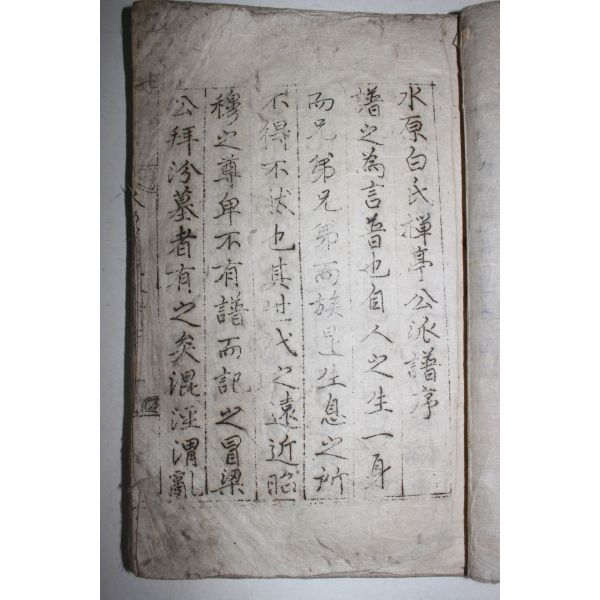 水原白氏揮亭公派譜序
譜之為言普也自人之生一身
而兄弟兄弟而族是生息之所
不得不然也其世代之遠近昭
穆之尊卑不有譜而記之冒梁
公拜汾墓者有之矣混涇渭亂